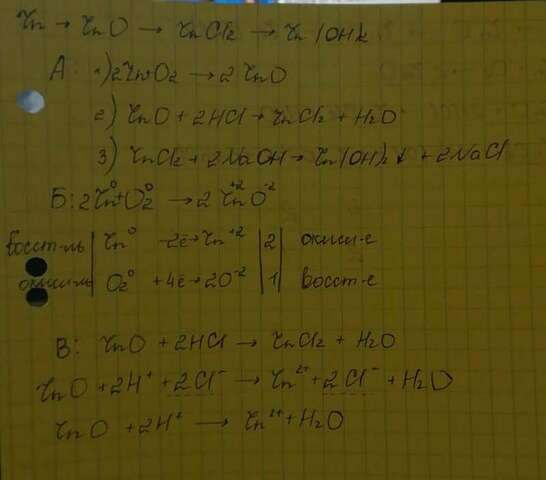 Zn → ZnO → ZnCl2 → Zn(OH)2
А: 1) 2Zn+O2 → 2ZnO
2) ZnO + 2HCl → ZnCl2 + H2O
3) ZnCl2 + 2NaOH → Zn(OH)2↓ + 2NaCl
Б: 2Zn⁰+O2⁰ → 2Zn⁺²O⁻²
восст-ль | Zn⁰ -2ē → Zn⁺² | 2 | окисл-е
окисл-ль | O2⁰ +4ē → 2O⁻² | 1 | восст-е
В: ZnO + 2HCl → ZnCl2 + H2O
ZnO + 2H⁺ + 2Cl⁻ → Zn²⁺ + 2Cl⁻ + H2O
ZnO + 2H⁺ → Zn²⁺ + H2O